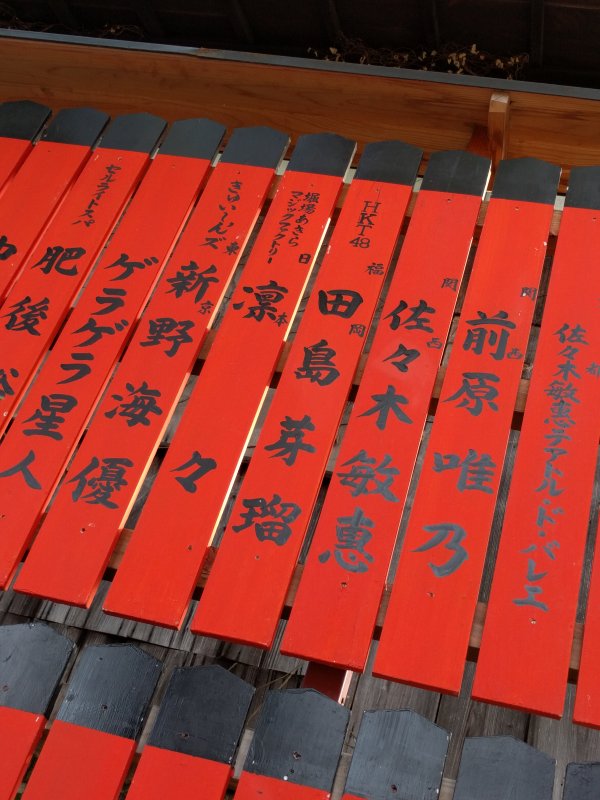 都
佐々木敏恵テアトル・ド・バレエ
西
前原唯乃
西
佐々木敏恵
HKT48
福岡
田島芽瑠
堀場あきら
マジックファクトリー
日本
凛々
きゅい〜んズ
東京
新野海優
ゲラゲラ星人
セルライトスパ
肥後